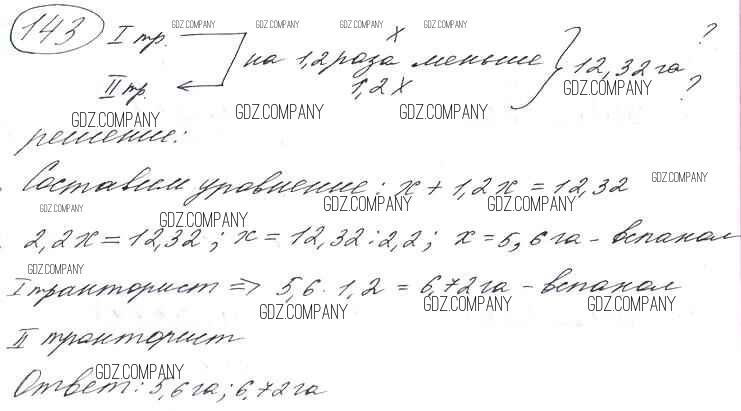 143 I тр. х ?
на 1,2 раза меньше } 12,32 га
II тр. 1,2 х ?
решение:
Составим уравнение: х + 1,2 х = 12,32
2,2х = 12,32; х = 12,32:2,2; х = 5,6 га - вспахал
I тракторист => 5,6 · 1,2 = 6,72 га - вспахал
II тракторист
Ответ: 5,6 га; 6,72 га
GDZ.COMPANY GDZ.COMPANY GDZ.COMPANY GDZ.COMPANY
GDZ.COMPANY
GDZ.COMPANY GDZ.COMPANY GDZ.COMPANY
GDZ.COMPANY
GDZ.COMPANY GDZ.COMPANY GDZ.COMPANY GDZ.COMPANY
GDZ.COMPANY
GDZ.COMPANY GDZ.COMPANY GDZ.COMPANY
GDZ.COMPANY